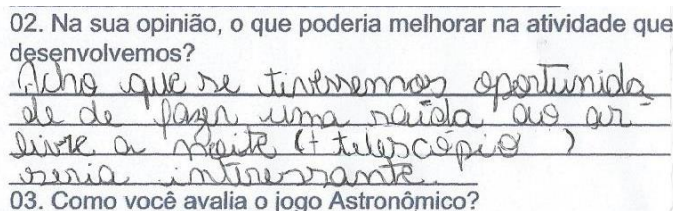 02. Na sua opinião, o que poderia melhorar na atividade que
desenvolvemos?
Acho que se tivessemos oportunida
de de fazer uma saída ao ar
livre a noite (+ telescópio )
seria interessante.
03. Como você avalia o jogo Astronômico?